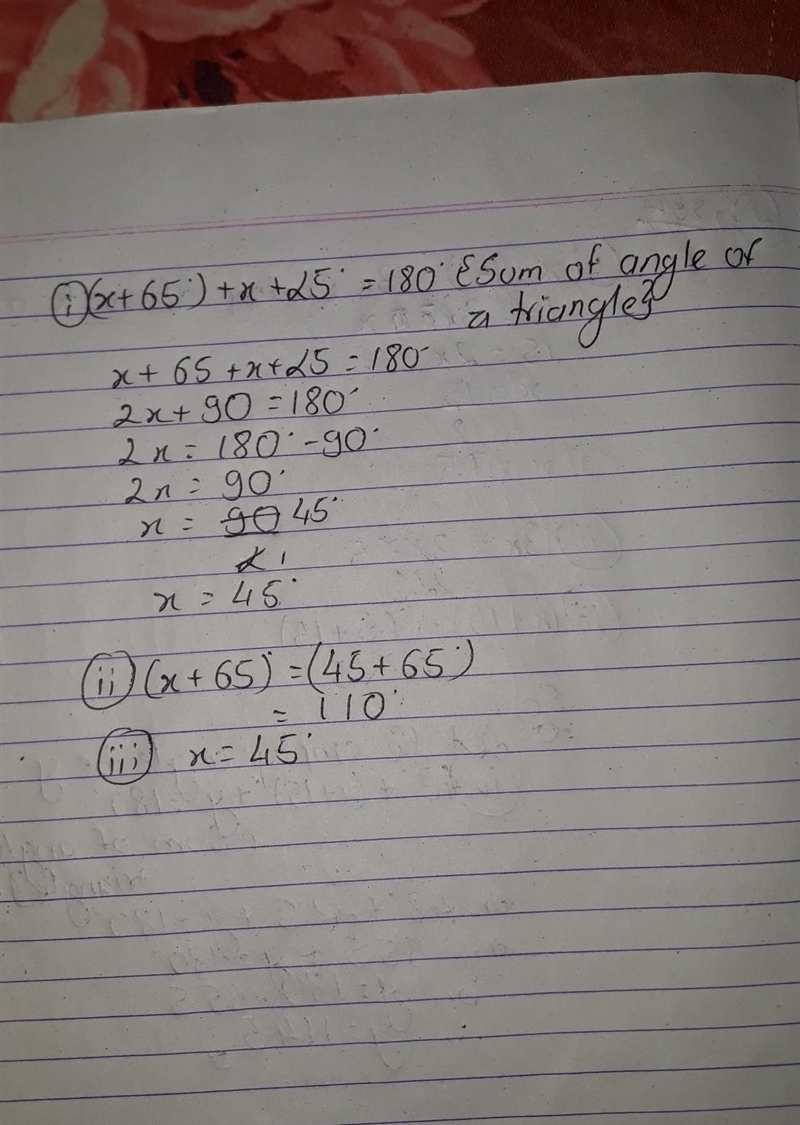 (i) (x+65°)+x+25° = 180° {Sum of angle of
a triangle}
x + 65 + x + 25 = 180°
2x + 90 = 180°
2x = 180° - 90°
2x = 90°
x = 90 45°
2 1
x = 45°
(ii) (x + 65)° = (45 + 65°)
= 110°
(iii) x = 45°